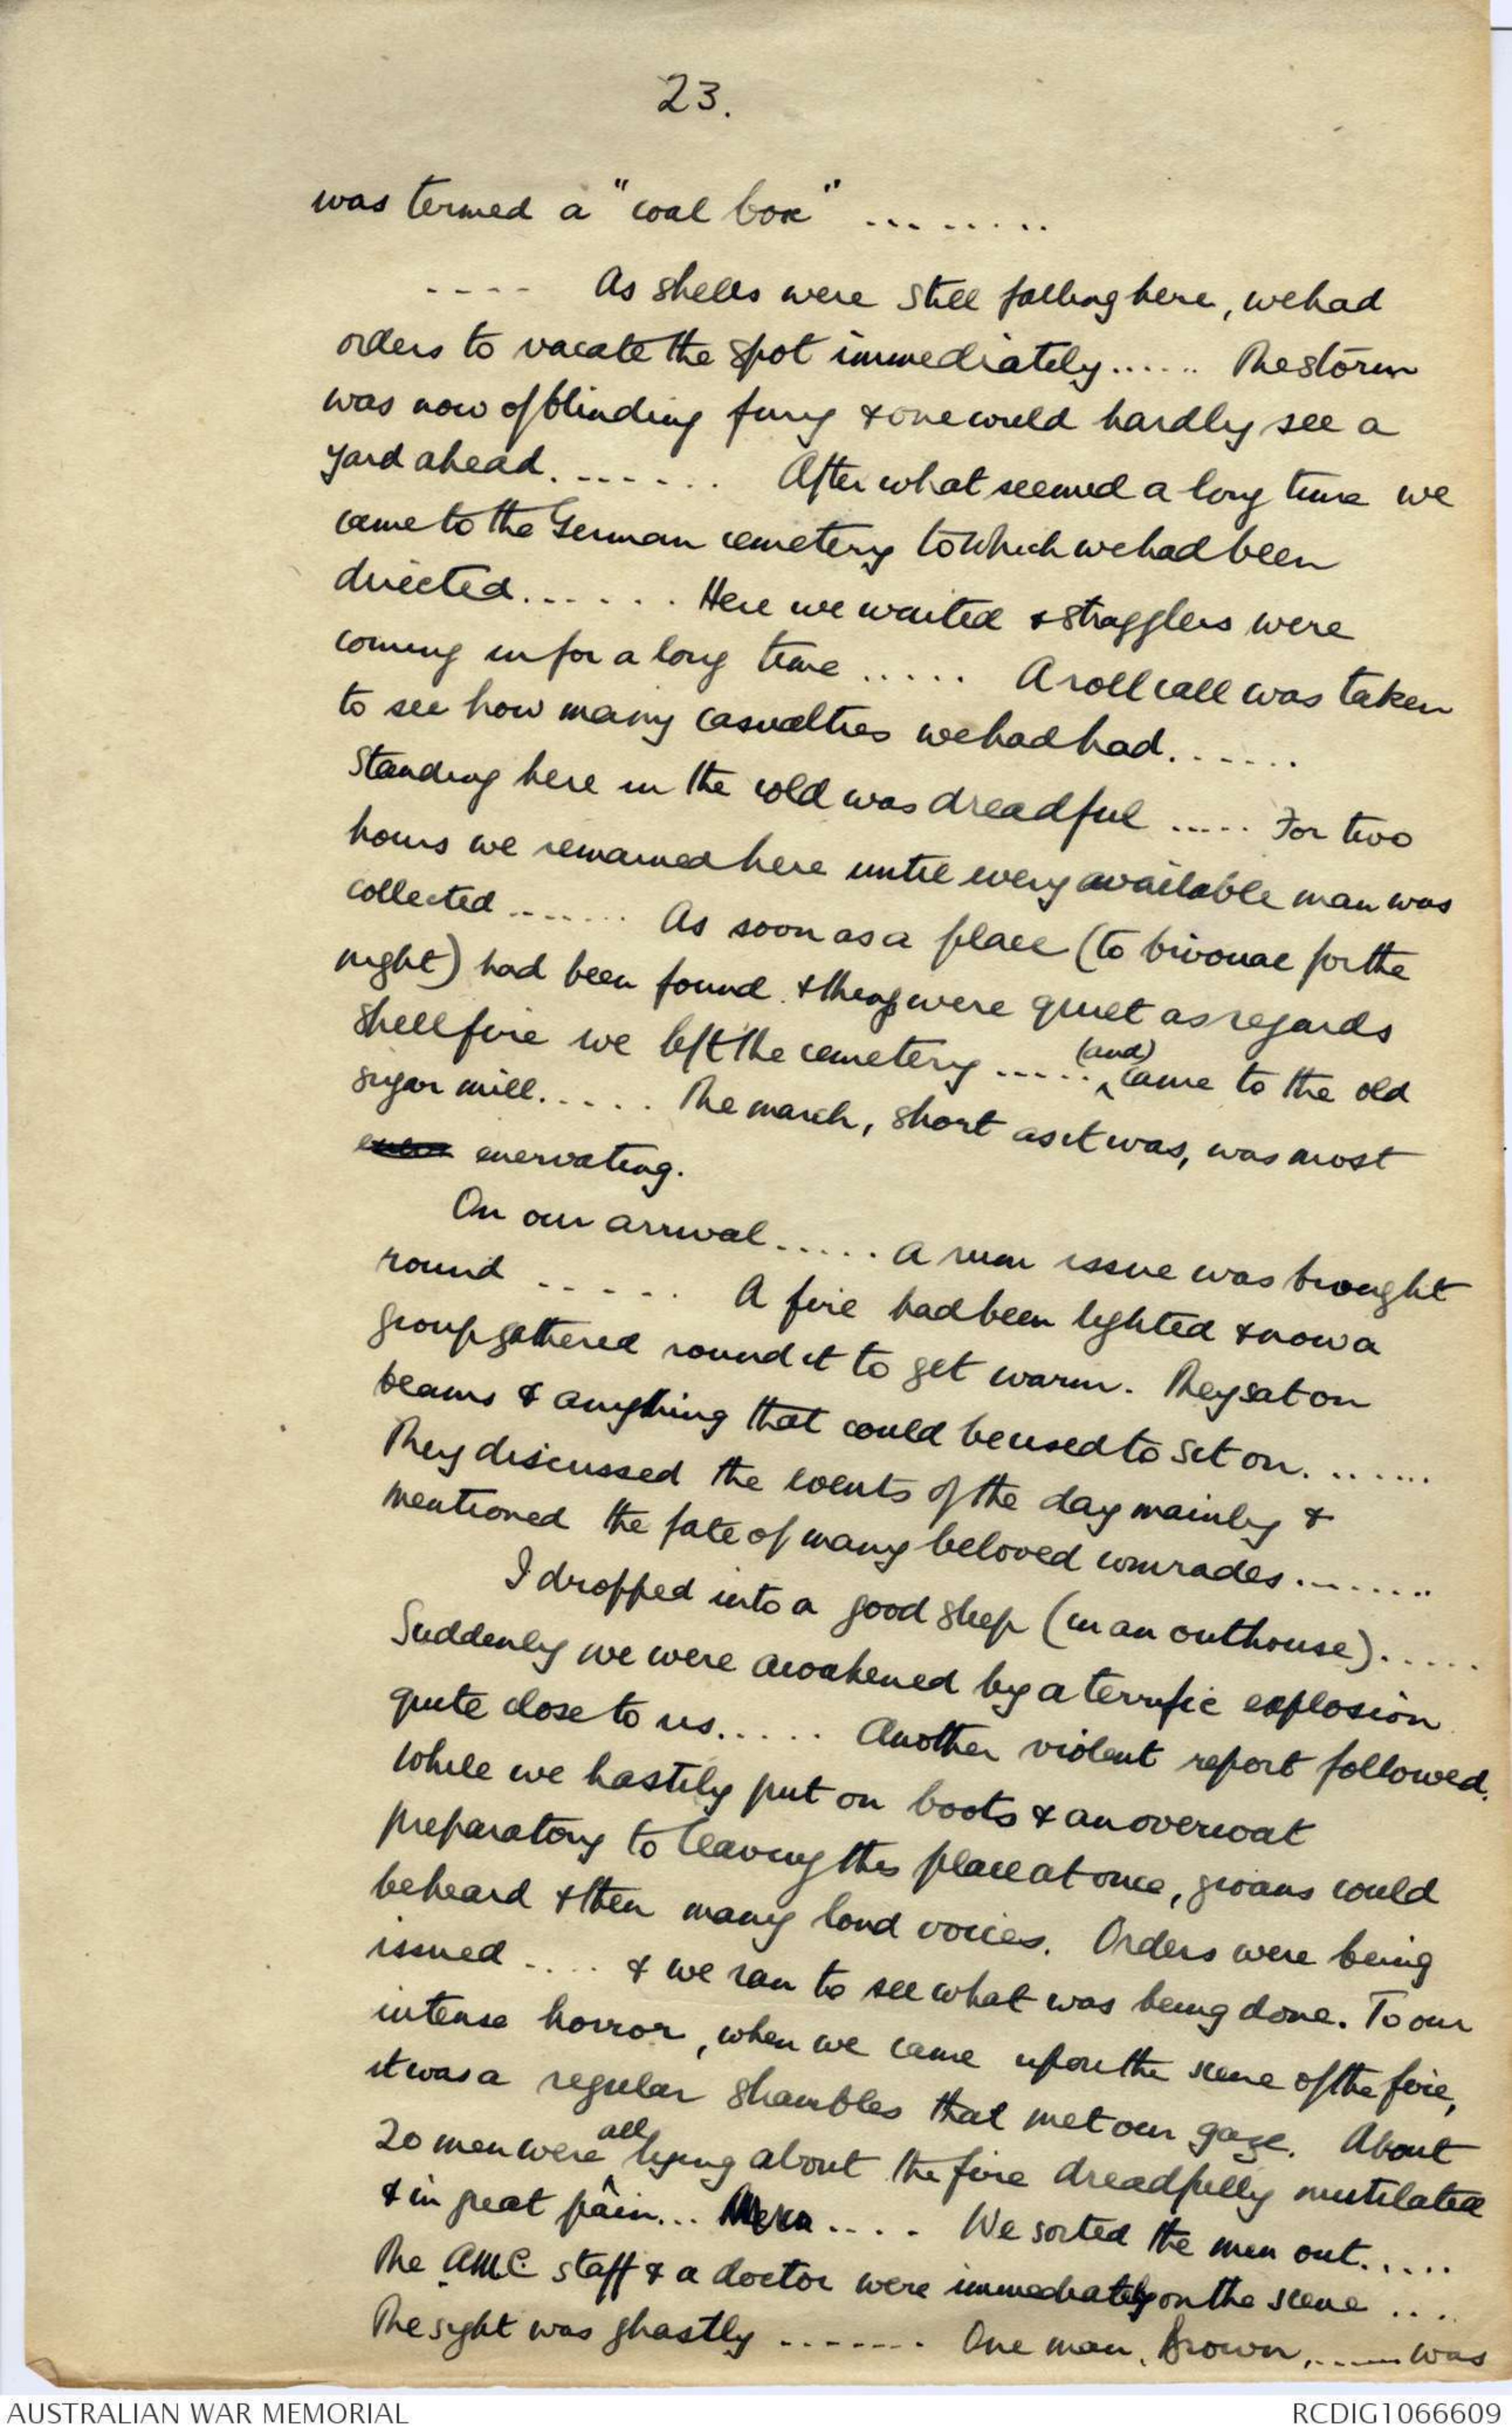 23.
was termed a "coal box" ........
.... As shells were still falling here, we had
orders to vacate the spot immediately...... The storm
was now of blinding fury & one could hardly see a
yard ahead....... After what seemed a long time we
came to the German cemetery to which we had been
directed...... Here we waited & stragglers were
coming in for a long time ..... A roll call was taken
to see how many casualties we had had......
Standing here in the cold was dreadful ..... For two
hours we remained here until every available man was
collected ....... As soon as a place (to bivouac for the
night) had been found & things were quiet as regards
shellfire we left the cemetery ..... (and) came to the old
sugar mill..... The march, short as it was, was most
enervating.
On our arrival..... a rum issue was brought
round ..... A fire had been lighted & now a
group gathered round it to get warm. They sat on
beams & anything that could be used to sit on.......
They discussed the events of the day mainly &
mentioned the fate of many beloved comrades.......
I dropped into a good sleep (in an outhouse).....
Suddenly we were awakened by a terrific explosion
quite close to us..... Another violent report followed.
While we hastily put on boots & an overcoat
preparatory to leaving this place at once, groans could
be heard & then many loud voices. Orders were being
issued .... & we ran to see what was being done. To our
intense horror, when we came upon the scene of the fire,
it was a regular shambles that met our gaze. About
20 men were all lying about the fire dreadfully mutilated
& in great pain... .... We sorted the men out.....
The A.M.C. staff & a doctor were immediately on the scene ....
The sight was ghastly ....... One man, Brown, ..... was
AUSTRALIAN WAR MEMORIAL
RCDIG1066609